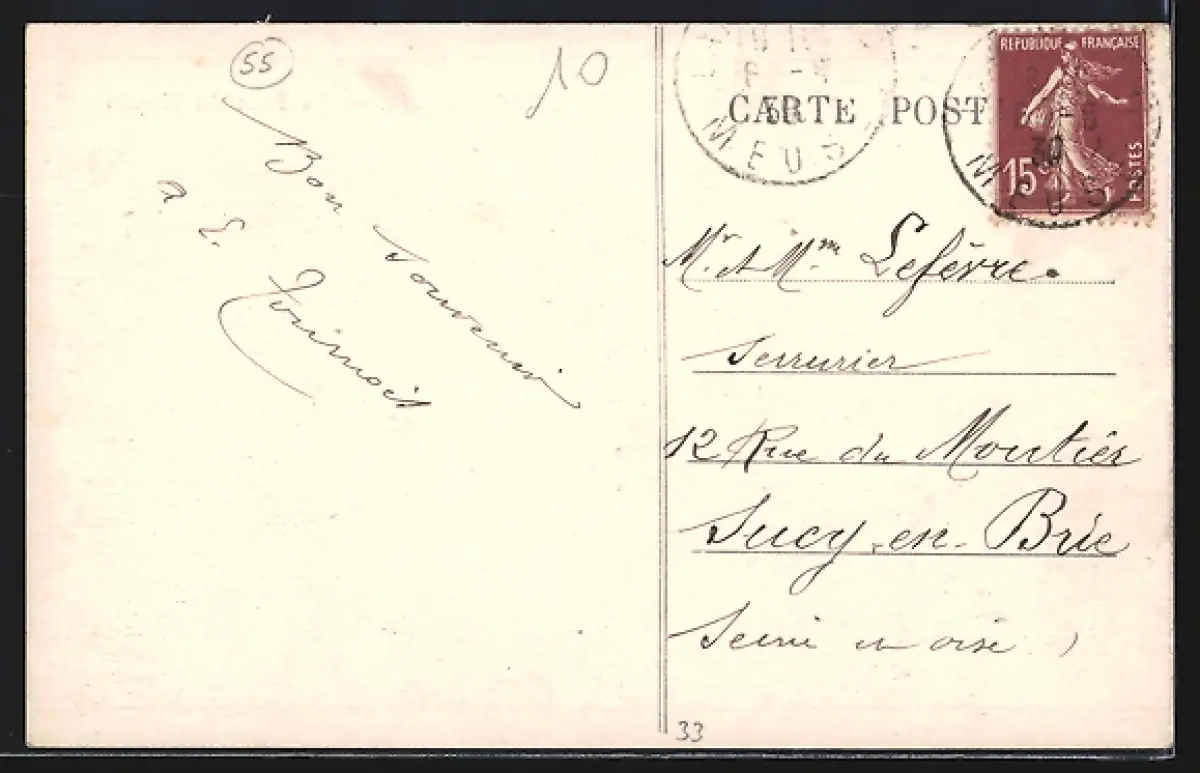 55
10
Bon Souvenir
a E.
CARTE POST
REPUBLIQUE FRANÇAISE
15c
POSTES
30
MEUS
30
MEUS
Mr. et Mm. Lefévre.
Serrurier
12 Rue du Moutiér
Sucy-en-Brie
Seine en oise )
33